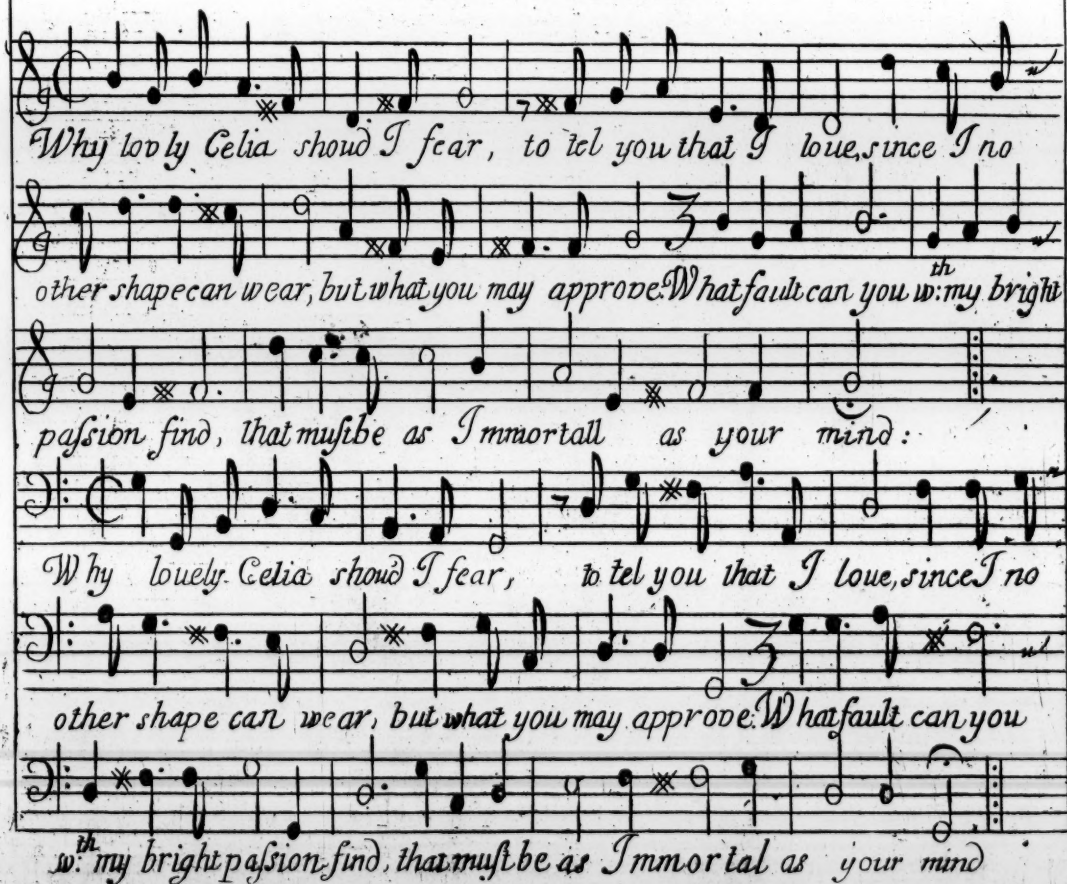 Why lovly Celia shoud I fear, to tel you that I loue, since I no
other shape can wear, but what you may approve. What fault can you w:th my bright
paſsion find, that muſt be as Immortall as your mind:
Why louely Celia shoud I fear, to tel you that I loue, since I no
other shape can wear, but what you may approve. What fault can you
w:th my bright paſsion find, that muſt be as Immortal as your mind